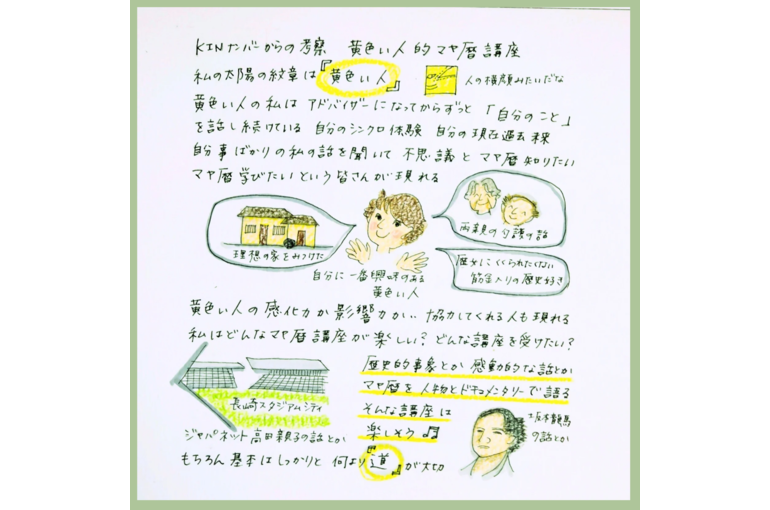 KINナンバーからの考察 黄色い人的マヤ暦講座
私の太陽の紋章は『黄色い人』 人の横顔みたいだな
黄色い人の私は アドバイザーになってからずっと 「自分のこと」
を話し続けている 自分のシンクロ体験 自分の現在過去未来
自分事ばかりの私の話を聞いて 不思議と マヤ暦知りたい
マヤ暦学びたいという皆さんが現れる
理想の家をみつけた
両親の介護の話
歴女にくくられたくない
筋金入りの歴史好き
自分に一番興味のある
黄色い人
黄色い人の感化力か影響力か‥ 協力してくれる人も現れる
私はどんなマヤ暦講座が楽しい? どんな講座を受けたい?
歴史的事象とか 感動的な話とか
マヤ暦を人物とドキュメンタリーで語る
そんな講座は
楽しそう♫
長崎スタジアムシティ
ジャパネット高田親子の話とか
坂本龍馬
の話とか
もちろん 基本はしっかりと 何より『道』が大切